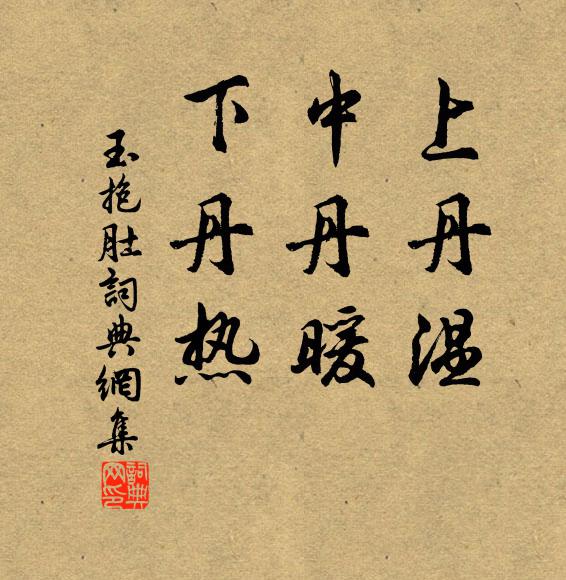 上丹温
中丹暖
下丹热
玉抱肚詞典網集
詞典
网印